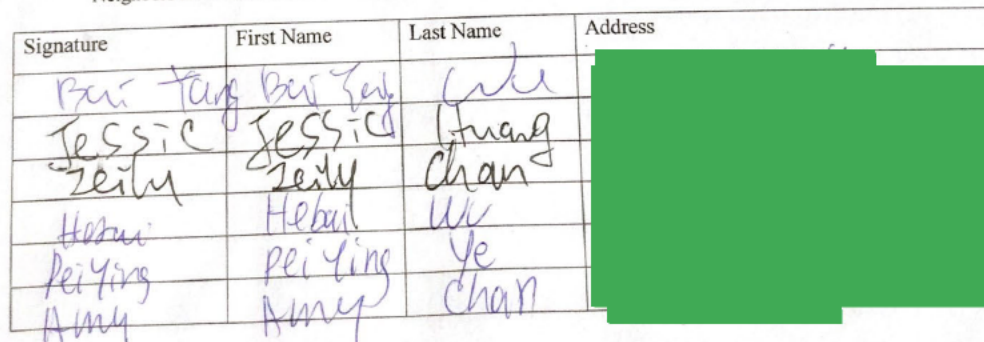 Signature First Name Last Name Address
Bai Yang Bai Yang Wu
Jessic Jessic Huang
Zeily Zeily Chan
Hebai Hebai Wu
Pei Ying Pei Ying Ye
Amy Amy Chan